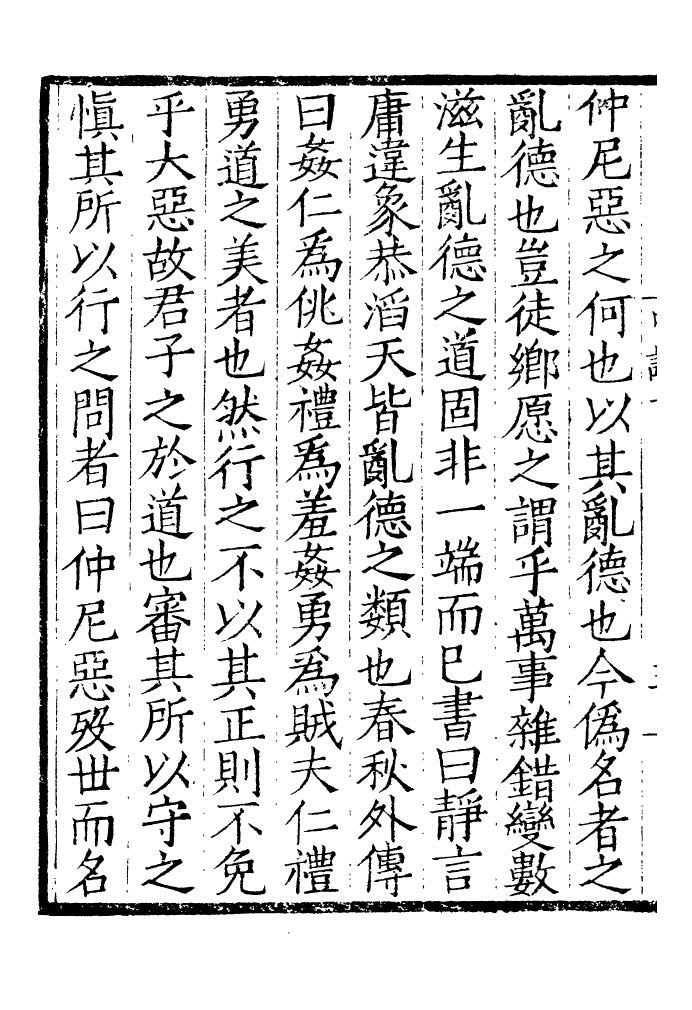 仲尼惡之何也以其亂德也今僞名者之
亂德也豈徒鄉愿之謂乎萬事雜錯變數
滋生亂德之道固非一端而已書曰靜言
庸違象恭滔天皆亂德之類也春秋外傳
曰姦仁爲佻姦禮爲羞姦勇爲賊夫仁禮
勇道之美者也然行之不以其正則不免
乎大惡故君子之於道也審其所以守之
慎其所以行之問者曰仲尼惡歿世而名